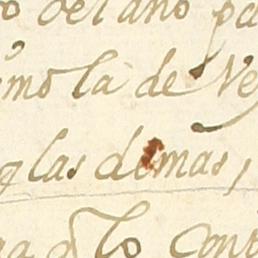 del año pa
como la de Ve
q las demas,
lo Con